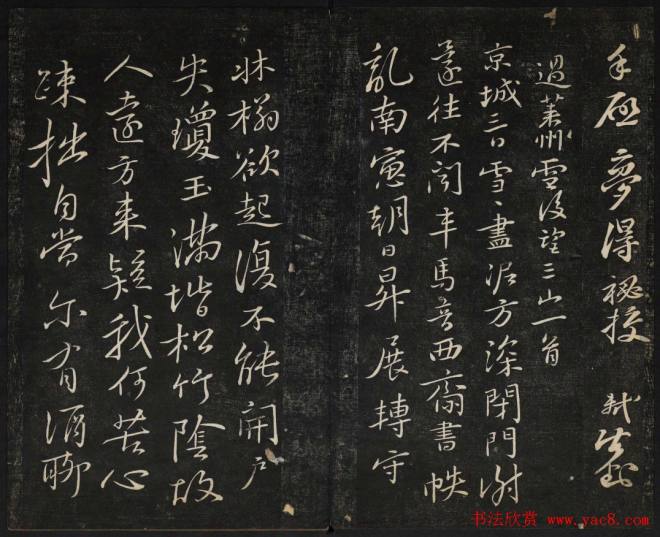 手啓夢得秘校 軾
過萊州雪後望三山一首
京城三日雪雪盡泥方深閉門謝
還往不聞車馬音西齋書帙
亂南窓朝日昇展轉守
牀榻欲起復不能開戶
失瓊玉滿堦松竹陰故
人遠方來疑我何苦心
疎拙自當尔有酒聊
书法欣赏 www.yac8.com